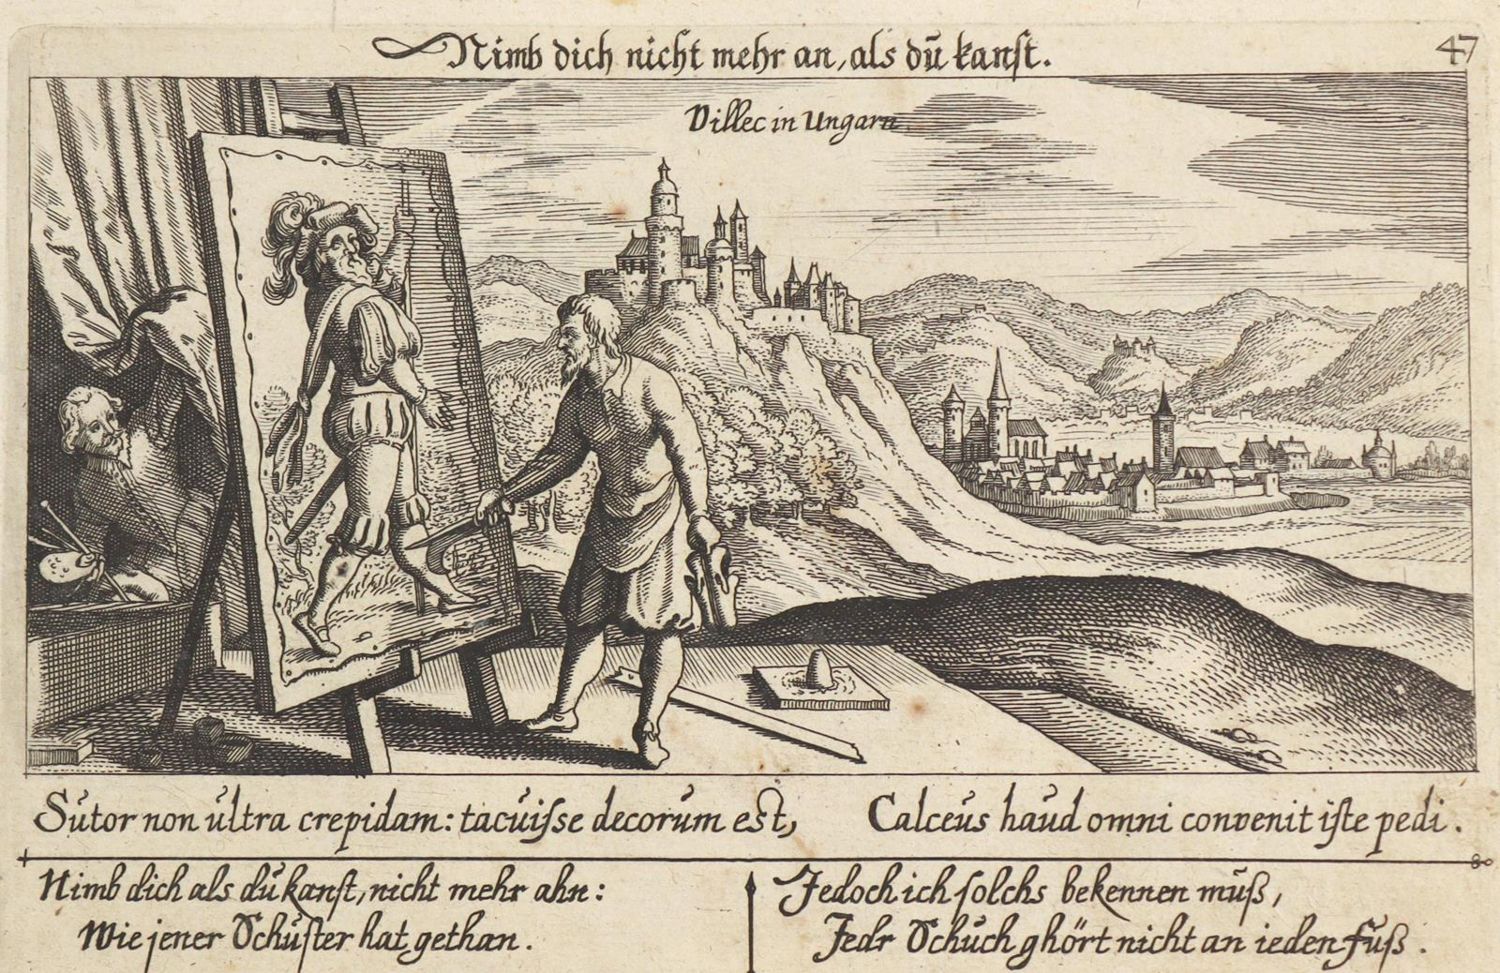 Nimb dich nicht mehr an, als dŭ kanst.
47
Villec in Ungarn
Sŭtor non ŭltra crepidam: tacŭisse decorŭm est, Calceŭs haŭd omni convenit iste pedi.
Nimb dich als dŭ kanst, nicht mehr ahn:
Wie jener Schŭster hat gethan.
Jedoch ich solchs bekennen mŭß,
Jedr Schŭch ghört nicht an ieden Fŭß.